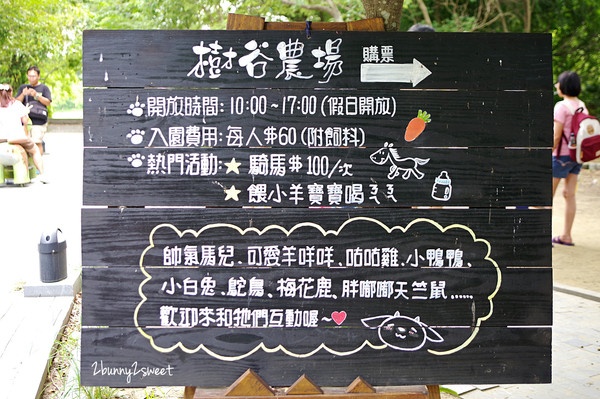 樹谷農場 購票
開放時間：10:00~17:00 (假日開放)
入園費用：每人$60 (附飼料)
熱門活動：★ 騎馬$100/次
★ 餵小羊寶寶喝ㄋㄋ
帥氣馬兒、可愛羊咩咩、咕咕雞、小鴨鴨、
小白兔、鴕鳥、梅花鹿、胖嘟嘟天竺鼠......
歡迎來和牠們互動喔~♥
2bunny2sweet